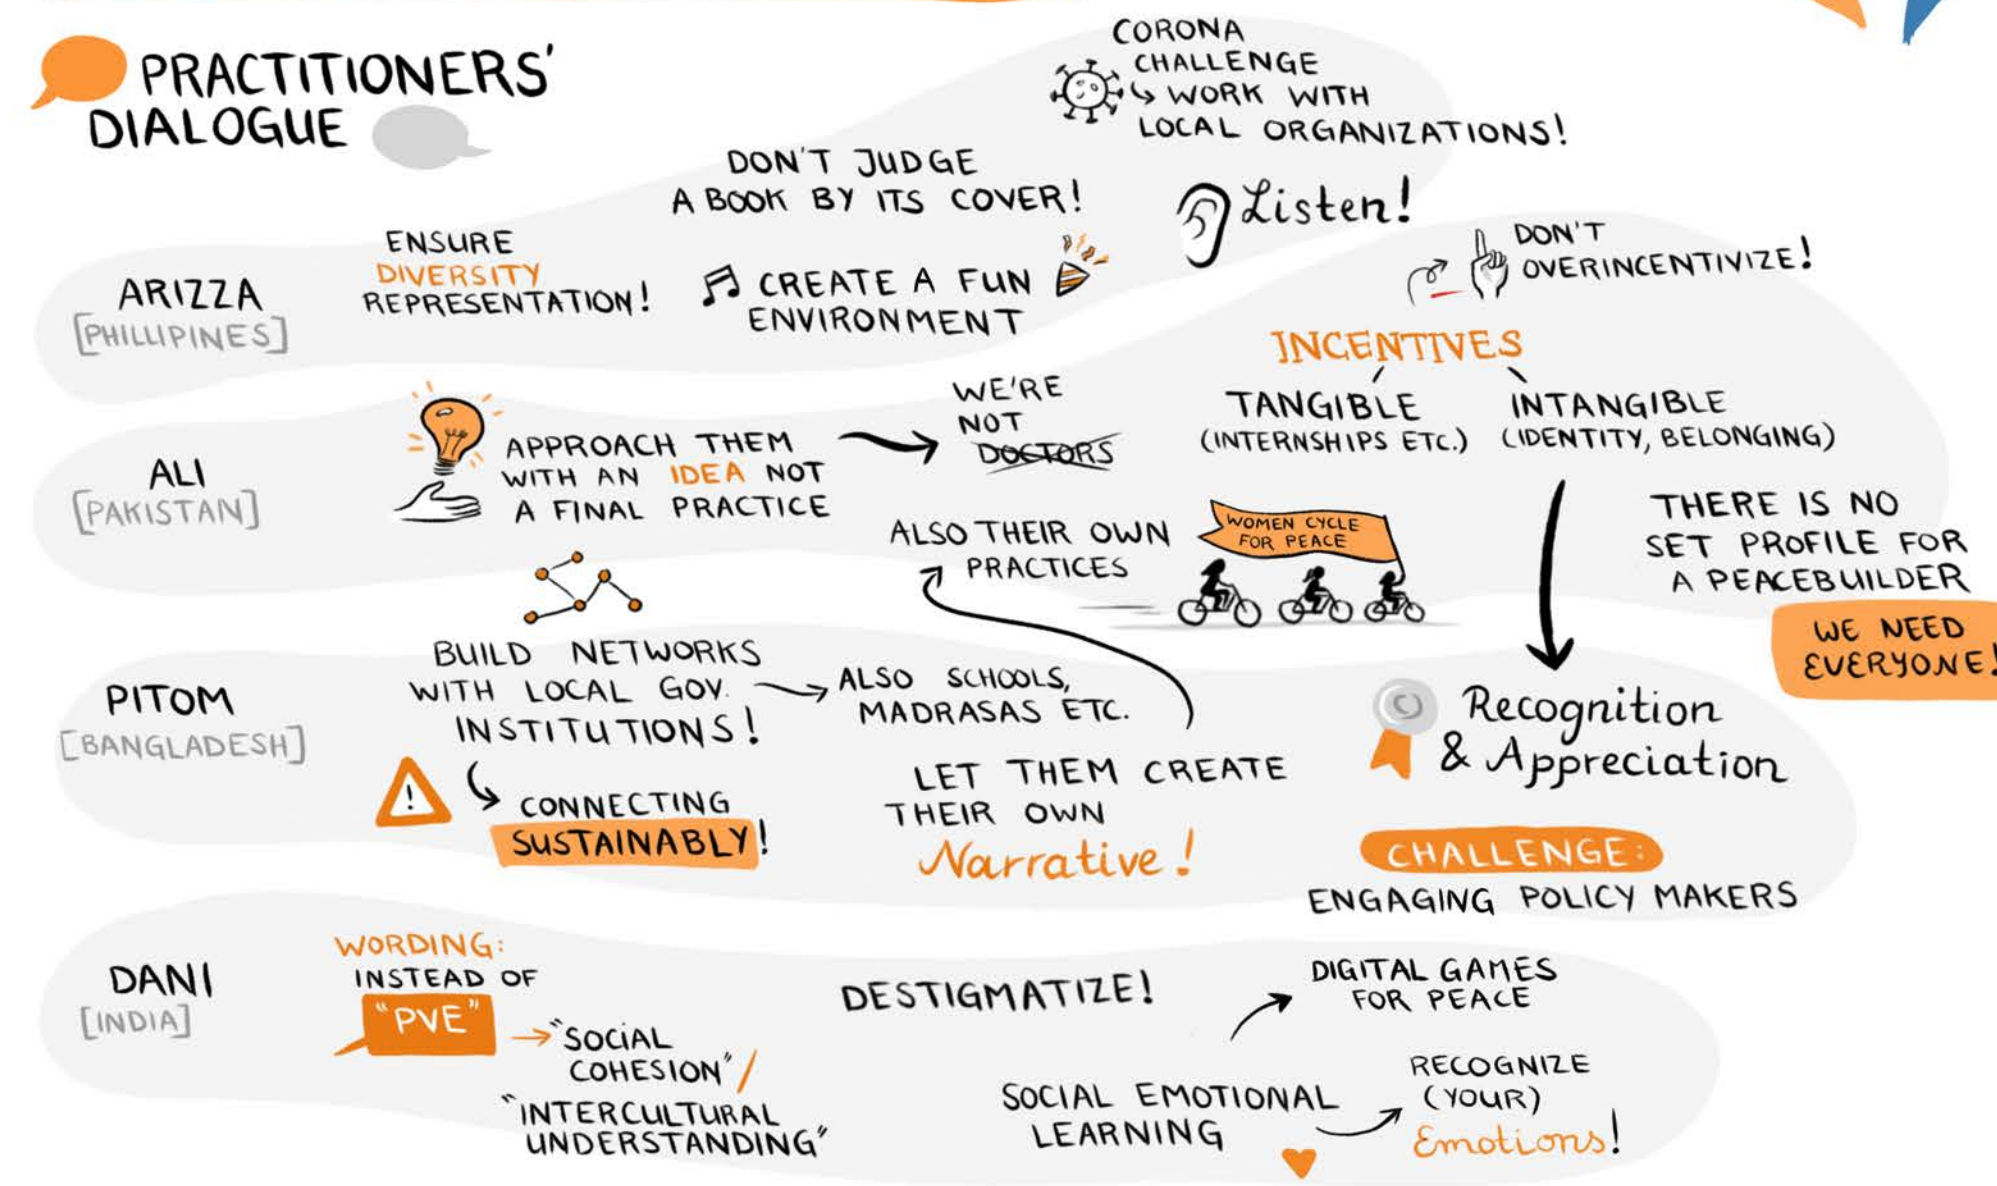 PRACTITIONERS'
DIALOGUE
CORONA
CHALLENGE
WORK WITH
LOCAL ORGANIZATIONS!
DON'T JUDGE
A BOOK BY ITS COVER!
Listen!
ARIZZA
[PHILLIPINES]
ENSURE
DIVERSITY
REPRESENTATION!
CREATE A FUN
ENVIRONMENT
DON'T
OVERINCENTIVIZE!
INCENTIVES
TANGIBLE
(INTERNSHIPS ETC.)
INTANGIBLE
(IDENTITY, BELONGING)
ALI
[PAKISTAN]
APPROACH THEM
WITH AN IDEA NOT
A FINAL PRACTICE
WE'RE
NOT
DOCTORS
ALSO THEIR OWN
PRACTICES
WOMEN CYCLE
FOR PEACE
THERE IS NO
SET PROFILE FOR
A PEACEBUILDER
WE NEED
EVERYONE!
PITOM
[BANGLADESH]
BUILD NETWORKS
WITH LOCAL GOV.
INSTITUTIONS!
ALSO SCHOOLS,
MADRASAS ETC.
CONNECTING
SUSTAINABLY!
LET THEM CREATE
THEIR OWN
Narrative!
Recognition
& Appreciation
CHALLENGE:
ENGAGING POLICY MAKERS
DANI
[INDIA]
WORDING:
INSTEAD OF
"PVE"
"SOCIAL
COHESION" /
"INTERCULTURAL
UNDERSTANDING"
DESTIGMATIZE!
DIGITAL GAMES
FOR PEACE
SOCIAL EMOTIONAL
LEARNING
RECOGNIZE
(YOUR)
Emotions!